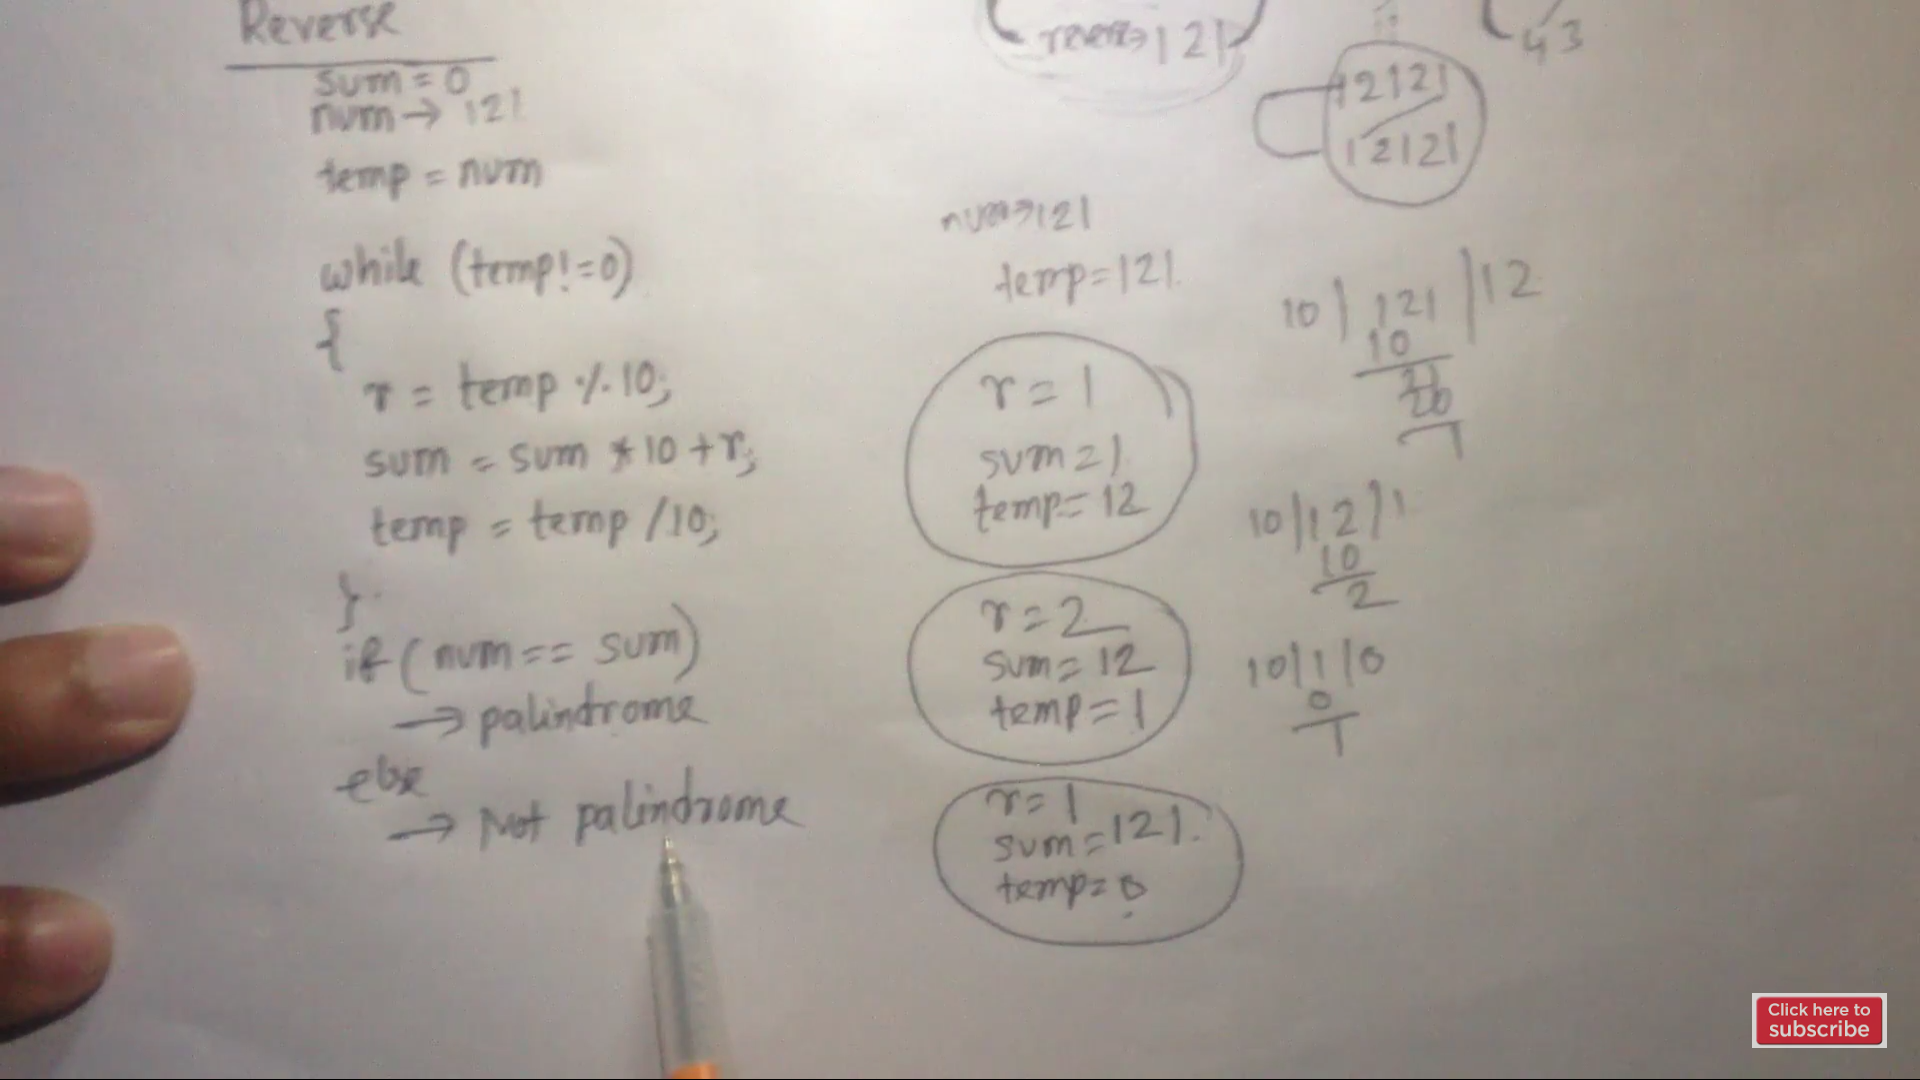 Reverse
sum = 0
num → 121
temp = num
while (temp!=0)
{
r = temp % 10;
sum = sum * 10 + r;
temp = temp / 10;
}
if (num == sum)
→ palindrome
else
→ Not palindrome
reverse → 121
12121
12121
43
num → 121
temp = 121.
r = 1
sum = 1
temp = 12
r = 2
sum = 12
temp = 1
r = 1
sum = 121.
temp = 0
10 | 121 | 12
10
21
20
1
10 | 12 | 1
10
2
10 | 1 | 0
0
1
Click here to
subscribe